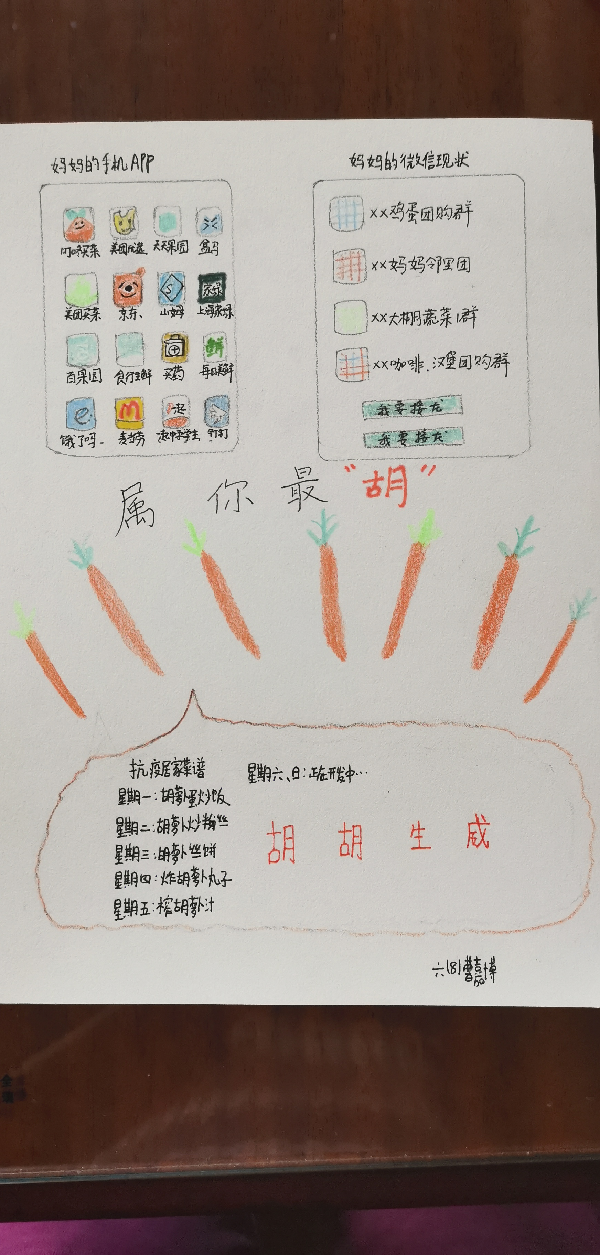 妈妈的手机APP
叮咚买菜 美团优选 天天果园 盒马
美团买菜 京东 山姆 上海农场
百果园 食行生鲜 买药 每日优鲜
饿了吗 麦当劳 一起中小学生 钉钉
妈妈的微信现状
××鸡蛋团购群
××妈妈邻里团
××大棚蔬菜1群
××咖啡、汉堡团购群
我要接龙
我要接龙
属你最“胡”
抗疫居家菜谱
星期一:胡萝卜蛋炒饭
星期二:胡萝卜炒粉丝
星期三:胡萝卜丝饼
星期四:炸胡萝卜丸子
星期五:榨胡萝卜汁
星期六、日:正在开发中…
胡胡生威
六(8)曹嘉博